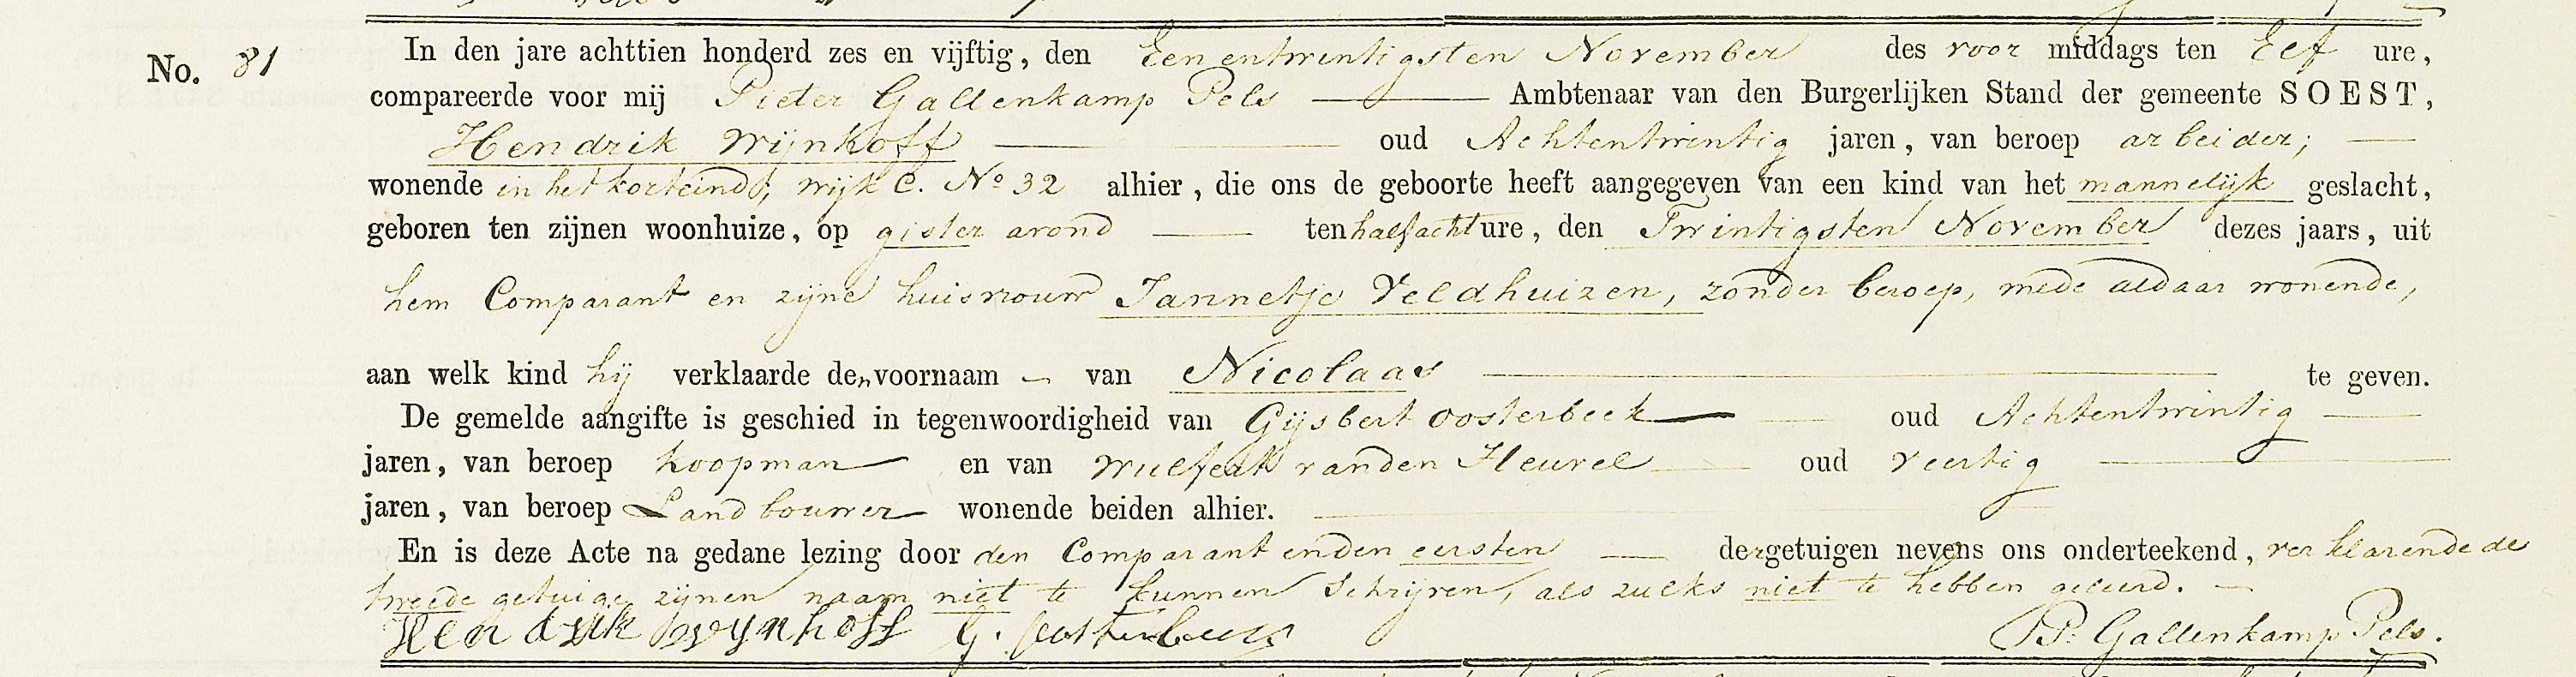 No. 81
In den jare achttien honderd zes en vijftig, den Eenentwintigsten November des voor middags ten Elf ure,
compareerde voor mij Pieter Gallenkamp Pels — Ambtenaar van den Burgerlijken Stand der gemeente SOEST,
Hendrik Wijnkoff — oud Achtentwintig jaren, van beroep arbeider; —
wonende in het korteind; wijk C. No 32 alhier, die ons de geboorte heeft aangegeven van een kind van het mannelijk geslacht,
geboren ten zijnen woonhuize, op gister avond — ten half acht ure, den Twintigsten November dezes jaars, uit
hem Comparant en zijne huisvrouw Jannetje Veldhuizen, zonder beroep, mede aldaar wonende,
aan welk kind hij verklaarde den voornaam — van Nicolaas — te geven.
De gemelde aangifte is geschied in tegenwoordigheid van Gijsbert Oosterbeek — oud Achtentwintig —
jaren, van beroep koopman en van Wulfert van den Heuvel — oud veertig —
jaren, van beroep Landbouwer wonende beiden alhier. —
En is deze Acte na gedane lezing door den Comparant en den eersten — der getuigen nevens ons onderteekend, verklarende de
tweede getuige zijnen naam niet te kunnen schrijven, als zulks niet te hebben geleerd. —
Hendrik Wynkoff G. Oosterbeek P. Gallenkamp Pels.